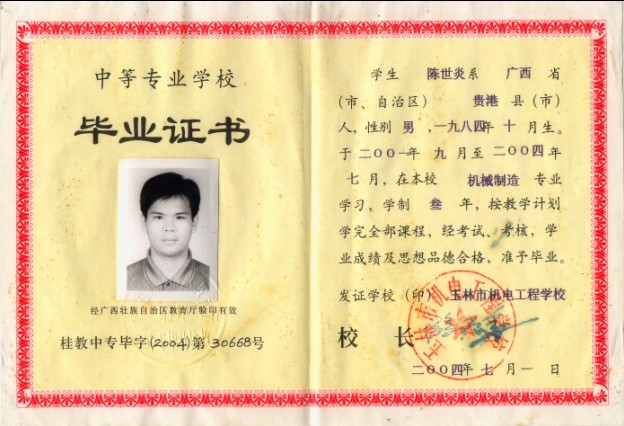 中等专业学校
毕业证书
经广西壮族自治区教育厅验印有效
桂教中专毕字(2004)第30668号
学生 陈世炎系 广西 省
(市、自治区) 贵港 县(市)
人,性别 男 ,一九八四年 十 月生。
于 二00一年 九 月至 二00四年
七 月,在本校 机械制造 专业
学习,学制 叁 年,按教学计划
学完全部课程,经考试、考核,学
业成绩及思想品德合格,准予毕业。
发证学校(印) 玉林市机电工程学校
校 长
二00四年 七 月 一 日
玉林市机电工程学校